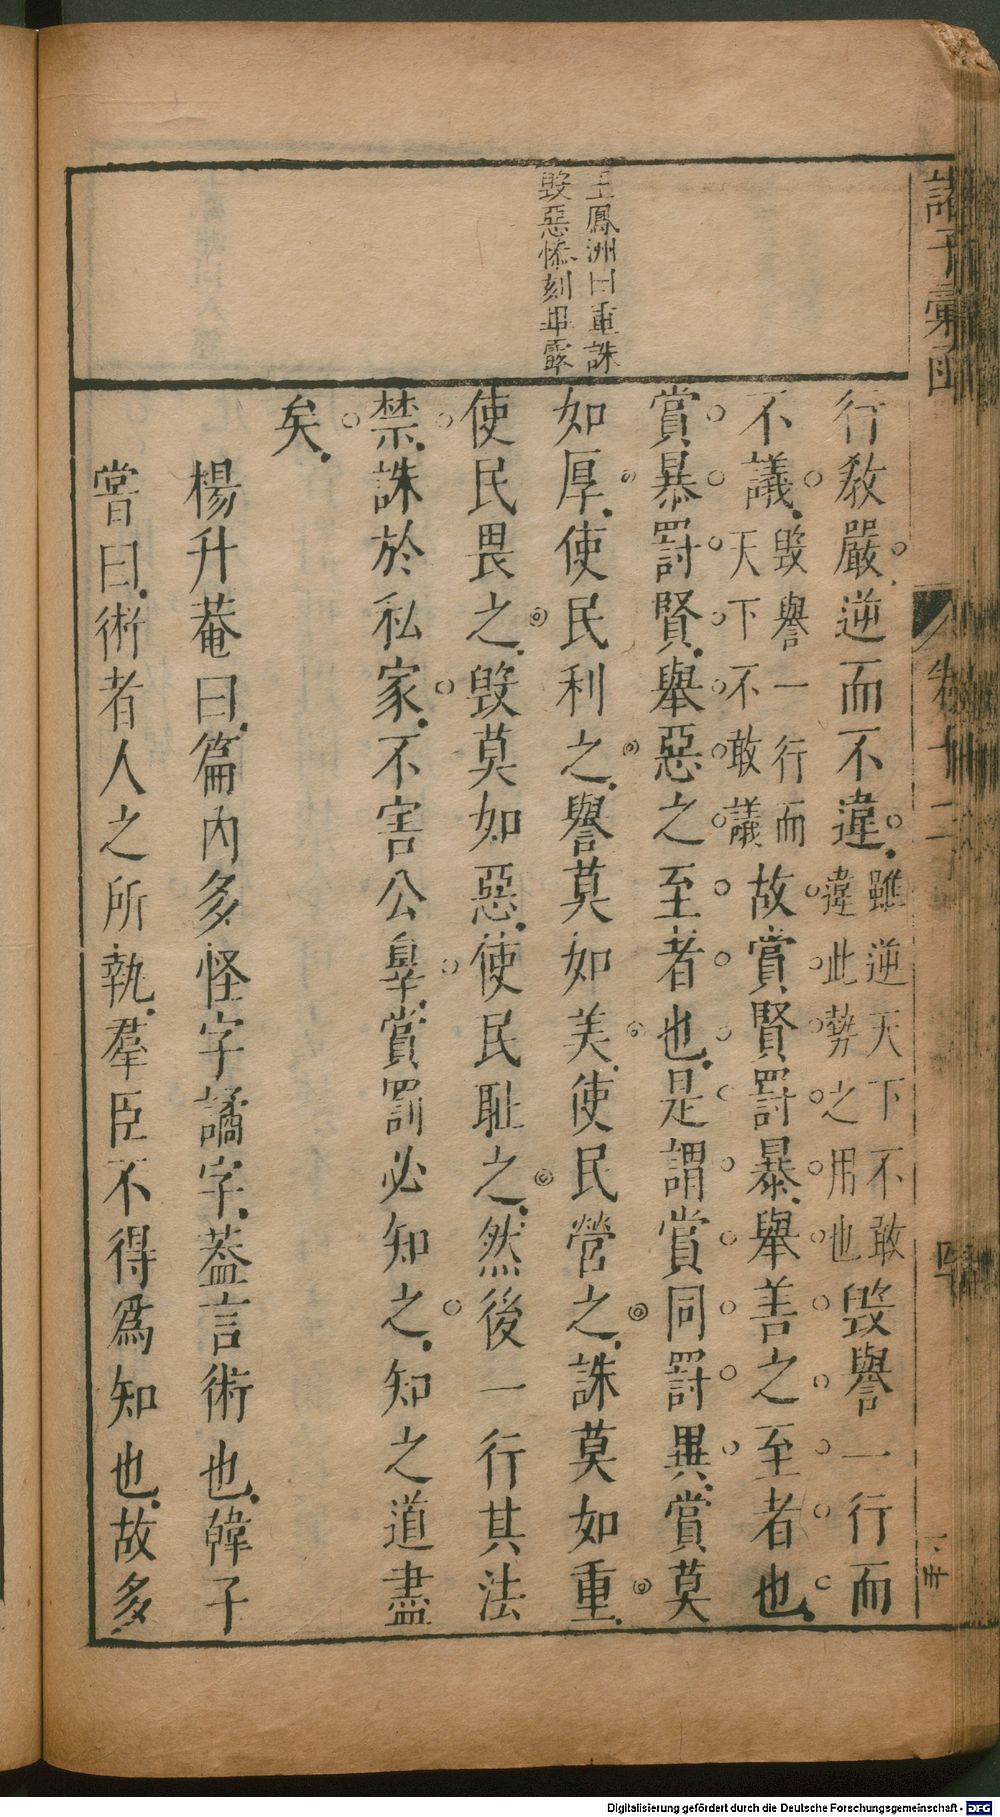 諸子彙函
卷十二
王鳳洲曰重誅
毀惡慘刻畢露
行教嚴逆而不違雖逆天下不敢
違此勢之用也毀譽一行而
不議毀譽一行而
天下不敢議故賞賢罰暴舉善之至者也
賞暴罰賢舉惡之至者也是謂賞同罰異賞莫
如厚使民利之譽莫如美使民營之誅莫如重
使民畏之毀莫如惡使民恥之然後一行其法
禁誅於私家不害公辠賞罰必知之知之道盡
矣
楊升菴曰篇內多怪字譎字蓋言術也韓子
嘗曰術者人之所執羣臣不得爲知也故多
Digitalisierung gefördert durch die Deutsche Forschungsgemeinschaft - DFG